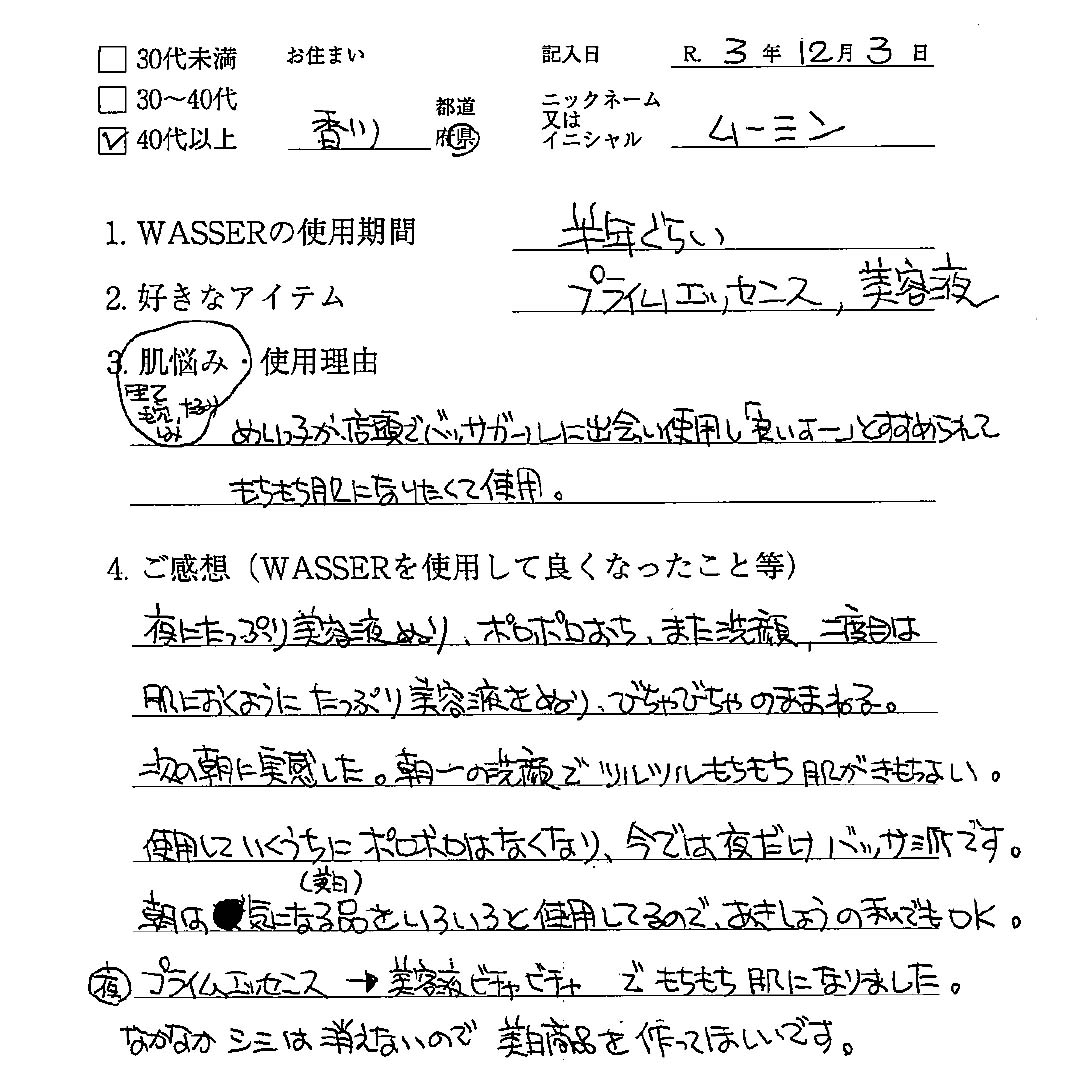 30代未満 お住まい 記入日 R. 3 年 12 月 3 日
30〜40代 都道 ニックネーム
✓ 40代以上 香川 府県 又は ムーミン
イニシャル
1. WASSERの使用期間 半年ぐらい
2. 好きなアイテム プライムエッセンス, 美容液
3. 肌悩み・使用理由
毛穴 たるみ
しみ
めいっ子が、店頭でバッサガールに出会い使用し「良いよー」とすすめられて
もちもち肌になりたくて使用。
4. ご感想（WASSERを使用して良くなったこと等）
夜にたっぷり美容液ぬり、ポロポロおち、また洗顔, 二度目は
肌におくようにたっぷり美容液をぬり、びちゃびちゃのままねる。
次の朝に実感した。朝一の洗顔でツルツルもちもち肌がきもちよい。
使用していくうちにポロポロはなくなり、今では夜だけバッサ派です。
(美白)
朝は気になる品をいろいろと使用してるので、あきしょうの私でもOK。
夜 プライムエッセンス → 美容液ビチャビチャ でもちもち肌になりました。
なかなかシミは消えないので美白商品を作ってほしいです。